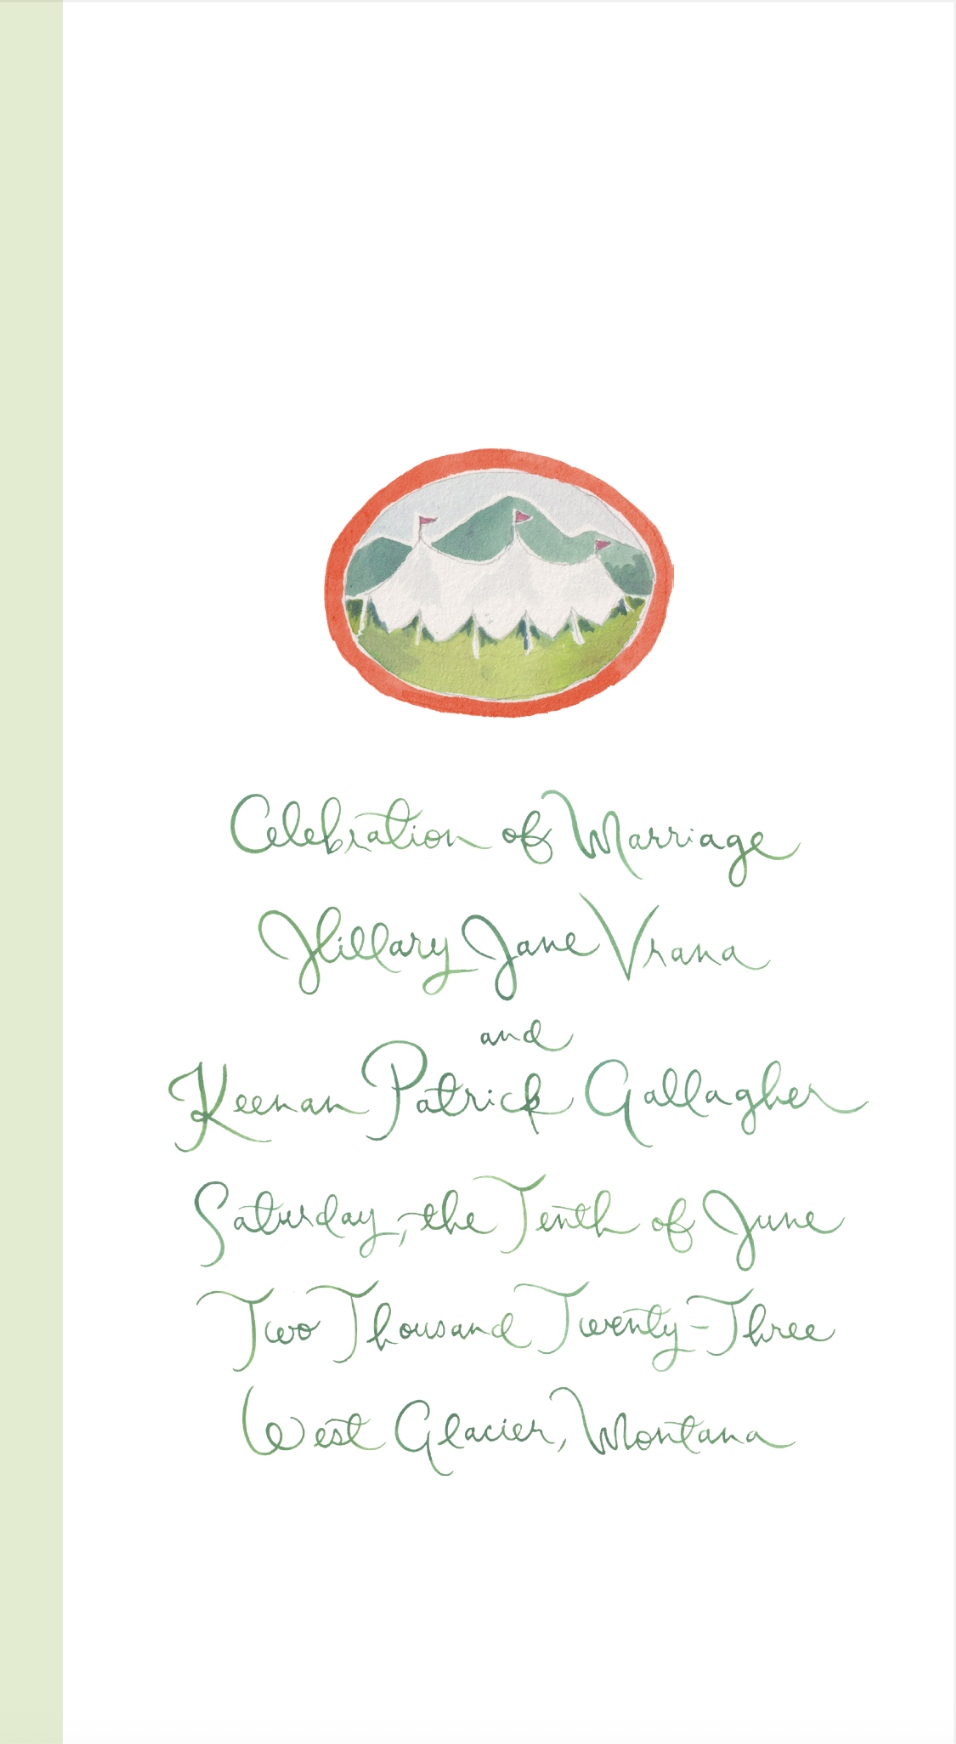 Celebration of Marriage
Hillary Jane Vrana
and
Keenan Patrick Gallagher
Saturday, the Tenth of June
Two Thousand Twenty-Three
West Glacier, Montana